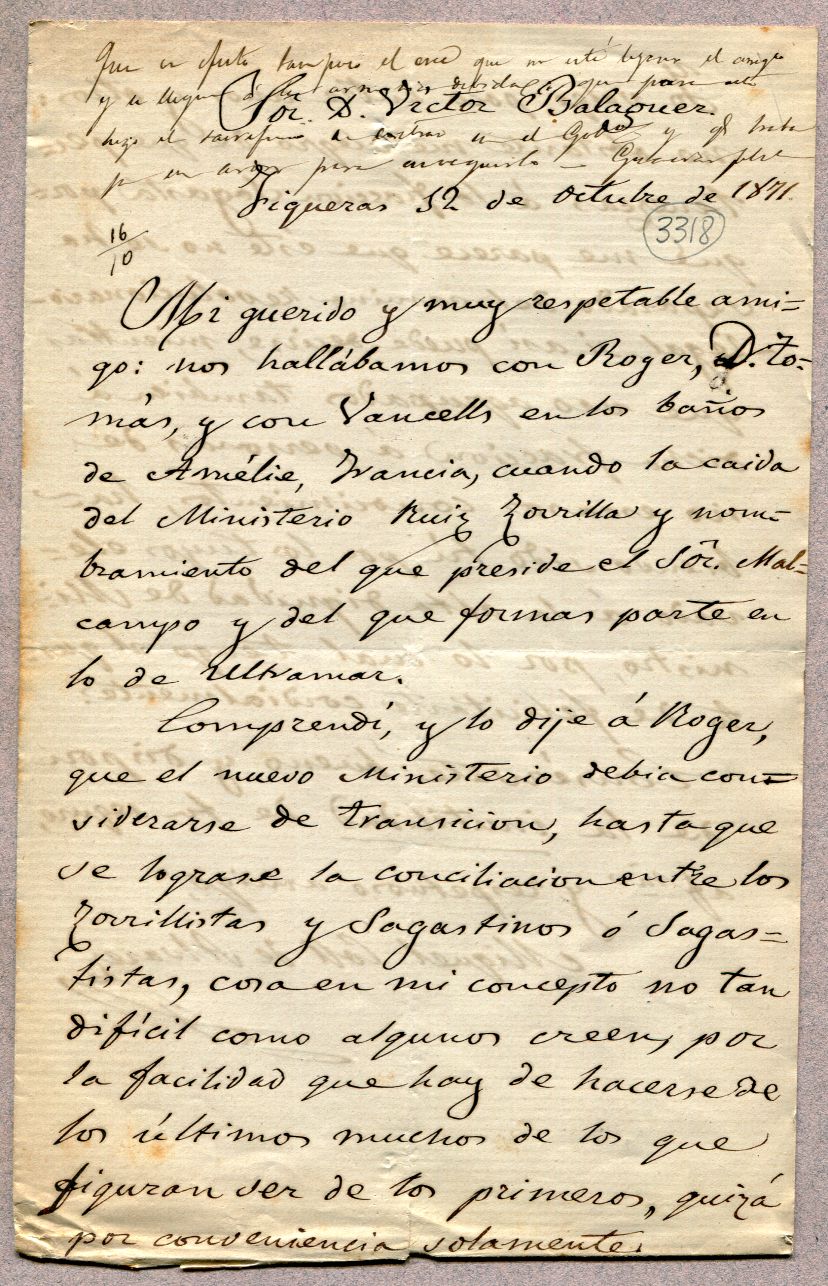 Que en efecto tampoco el cree que no esté lejano el arreglo
y se llegue á la armonia debida, que para ello
Sor. D. Victor Balaguer.
hizo el sacrificio de entrar en el Gobno y qe
Figueras 12 de Octubre de 1871.
16/10
3318
Mi querido y muy respetable ami=
go: nos hallábamos con Roger, D. To=
más, y con Vancells en los baños
de Amélie, Francia, cuando la caida
del Ministerio Ruiz Zorrilla y nom=
bramiento del que preside el Sôr. Mal=
campo y del que formas parte en
lo de Ultramar.
Comprendí, y lo dije á Roger,
que el nuevo Ministerio debia con=
siderarse de transicion, hasta que
se lograse la conciliacion entre los
Zorrillistas y Sagastinos ó Sagas=
tistas, cosa en mi concepto no tan
difícil como algunos creen, por
la facilidad que hay de hacerse de
los últimos muchos de los que
figuran ser de los primeros, quizá
por conveniencia solamente.